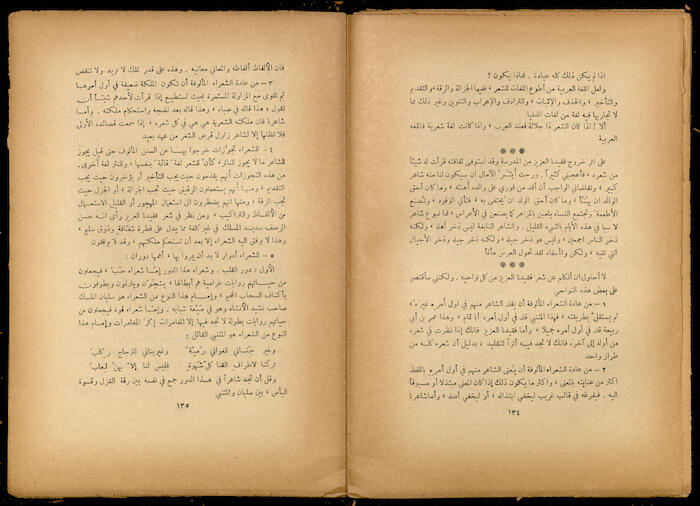 اذا لم يكن ذلك كله عبادة . فماذا يكون ؟
ولعل اللغة العربية من أطوع اللغات للشعر ، ففيها الجزالة والرقة والتقديم
والتأخير ، والحذف والاثبات ، والترادف والإعراب والتنوين وغير ذلك مما
لا تجاريها فيه لغة من لغات الدنيا
ألا ! اذا كان الشعر ذا جلالة فعند العرب ، واذا كانت لغة شعرية فاللغة
العربية
***
على اثر خروج فقيدنا العزيز من المدرسة وقد استوفى ثقافته قرأت له شيئاً
من شعره ، فأعجبني كثيراً . ورحت أبشر الآمال ان سيكون لنا منه شاعر
كبير ، وتقاضاني الواجب أن أفد من فوري على والده أهنئه ، وما كان أحق
الوالد ان يهنأ ، وما كان أحق الولد ان يحتفى به ، فتأتي الوفود ، وتصنع
الأطعمة وتجتمع النساء يلعبن بالمزاهر كما يصنعن في الأعراس ، فما نبوغ شاعر
لا سيما في هذه الأيام بالشيء القليل . والشاعر النابغة ليس ذخر أهله ، ولكنه
ذخر الناس اجمعين ، وليس هو ذخر جيله ، ولكنه ذخر جيله وذخر الأجيال
التي تليه ، ولكن والأسفاه لقد تحول العرس مأتماً
***
لا أحاول ان أتكلم عن شعر فقيدنا العزيز من كل نواحيه . ولكنني سأقتصر
على بعض هذه النواحي
١ – من عادة الشعراء المألوفة أن يقلد الشاعر منهم في اول أمره غيره ،
ثم يستقل بطريقته ، فهذا المتنبي قلد في أول أمره أبا تمام ، وهذا عمر بن أبي
ربيعة قلد في أول أمره جميلاً ، وأما فقيدنا العزيز فانك إذا نظرت في شعره
من أوله إلى آخره فانك لا تجد فيه أثراً للتقليد ، بدليل أن شعره كله من
طراز واحد
٢ – من عادة الشعراء المألوفة أن يُعنى الشاعر منهم في اول أمره باللفظ
اكثر من عنايته بالمعنى ، واكثر ما يكون ذلك إذا كان المعنى مبتذلا أو مسروقاً
اليه . فيفرغه في قالب غريب ليخفي ابتذاله ، أو ليخفي أصله ، وأما شاعرنا
١٣٤
فان الألفاظ ألفاظه والمعاني معانيه . وهذه على قدر تلك لا تزيد ولا تنقص
٣ – من عادة الشعراء المألوفة أن تكون الملكة ضعيفة في أول أمرها
ثم تقوى مع المزاولة المستمرة بحيث تستطيع إذا قرأت لأحدهم شيئاً أن
تقول : هذا قاله في صباه ، وهذا قاله بعد نضجه واستحكام ملكته . وأما
شاعرنا فان ملكته الشعرية هي هي في كل شعره ، إذا سمعت قصائده الأولى
فلا تظنها إلا لشاعر زاول قرض الشعر من عهد بعيد
٤ – للشعراء تجوزات خرجوا بها عن السنن المألوف حتى قيل يجوز
للشاعر ما لا يجوز للناثر ، كأن للشعر لغة قائمة بنفسها ، وللنثر لغة أخرى .
من هذه التجوزات أنهم يقدمون حيث يجب التأخير أو يؤخرون حيث يجب
التقديم ، ومنها أنهم يستعملون الرقيق حيث تجب الجزالة ، أو الجزل حيث
تجب الرقة ، ومنها انهم يضطرون الى استعمال المهجور أو القليل الاستعمال
من الألفاظ والتراكيب ، ومن نظر في شعر فقيدنا العزيز رأى انه حسن
الرصف سديد المسلك في غير كلفة مما يدل على فطرة شفافة وذوق سليم ،
وهذا لا يوفق اليه الشعراء إلا بعد أن تستحكم ملكتهم ، وقد لا يوفقون
٥ – للشعراء أدوار لا بد أن يمروا بها ، أهمها دوران :
الأول : دور القلب . وشعراء هذا الدور إما شعراء حب ، فيجعلون
من حياتهم روايات غرامية هم أبطالها ، يسجدون ويتركون ويطوفون
بأكناف السحاب المخيم ، وإمام هذا النوع من الشعراء هو سليمان الملك
صاحب نشيد الأنشاد وهو في ميعة شبابه . وإما شعراء قوة فيجعلون من
حياتهم روايات بطولة لا تجد فيها إلا المغامرات إثر المغامرات وإمام هذا
النوع من الشعراء هو المتنبي القائل :
وغير جناني للغواني رمية وغير بناني للزجاج ركاب
تركنا لأطراف القنا كل شهوة فليس لنا إلا بهن لعاب
وقل أن تجد شاعراً في هذا الدور جمع في نفسه بين رقة الغزل وقسوة
البأس ، بين سليمان والمتنبي
١٣٥